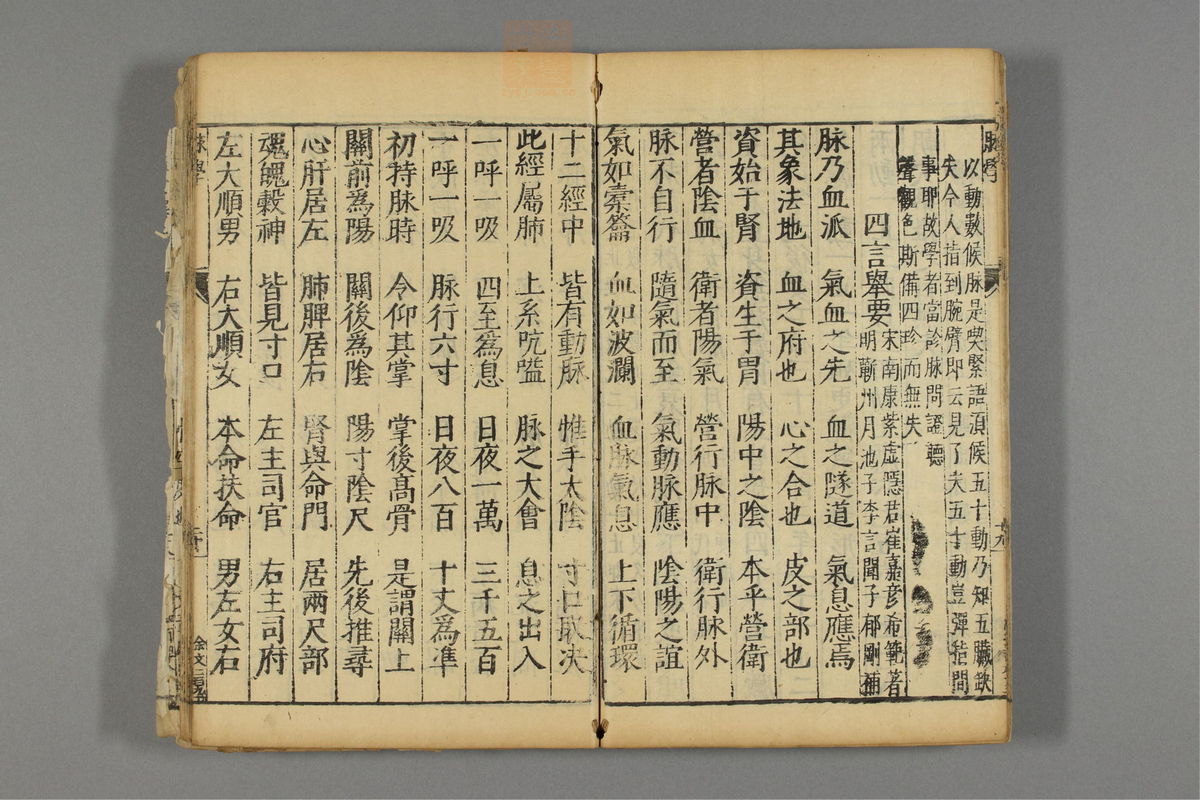 以動數候脉是喫緊語湏候五十動乃知五臟缺
失今人指到腕臂即云見了夫五十動豈彈指間
事耶故學者當診脉問證聽
聲觀色斯備四珍而無失
四言舉要
宋南康紫虛隱君崔嘉彦希範著
明蘄州月池子李言聞子郁刪補
脉乃血派 氣血之先 血之隧道 氣息應焉
其象法地 血之府也 心之合也 皮之部也
資始于腎 資生于胃 陽中之陰 本乎營衛
營者陰血 衛者陽氣 營行脉中 衛行脉外
脉不自行 隨氣而至 氣動脉應 陰陽之誼
氣如橐籥 血如波瀾 血脉氣息 上下循環
十二經中 皆有動脉 惟手太陰 寸口取决
此經屬肺 上系吭嗌 脉之大會 息之出入
一呼一吸 四至爲息 日夜一萬 三千五百
一呼一吸 脉行六寸 日夜八百 十丈爲準
初持脉時 令仰其掌 掌後髙骨 是謂關上
關前爲陽 關後爲陰 陽寸陰尺 先後推尋
心肝居左 肺脾居右 腎與命門 居兩尺部
魂魄榖神 皆見寸口 左主司官 右主司府
左大順男 右大順女 本命扶命 男左女右